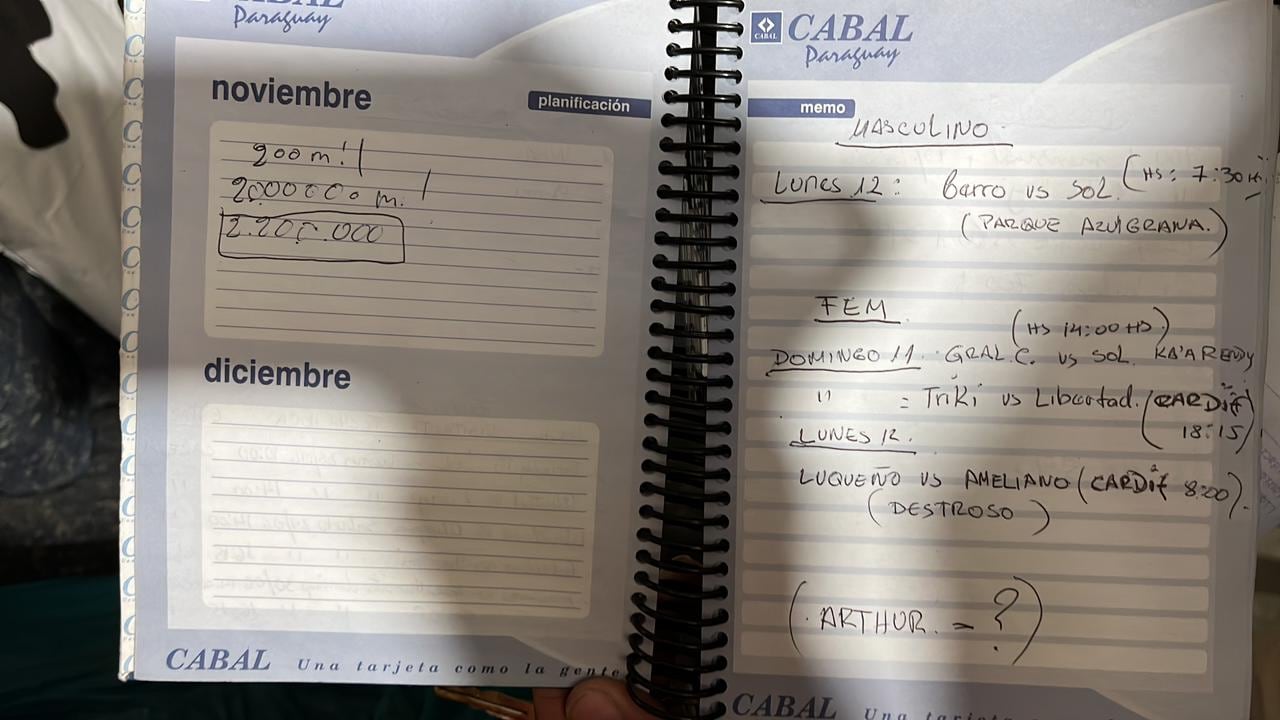 CABAL
Paraguay
noviembre
planificación
200 m!
2.000.000 m.!
2.200.000
diciembre
CABAL Una tarjeta como la gente
CABAL
CABAL
Paraguay
memo
MASCOLINO
Lunes 12: Barro vs SOL. (HS: 7:30 H.
(PARQUE AZULGRANA.)
FEM
(HS 14:00 HS)
DOMINGO 11. GRAL.C. vs SOL. KA'A RENDY
" = Triki vs Libertad. (CARDIF
18:15)
LUNES 12.
LUQUEÑO VS AMELIANO (CARDIF 8:00).
(DESTROSO)
(. ARTHUR. - ?)
CABAL Una